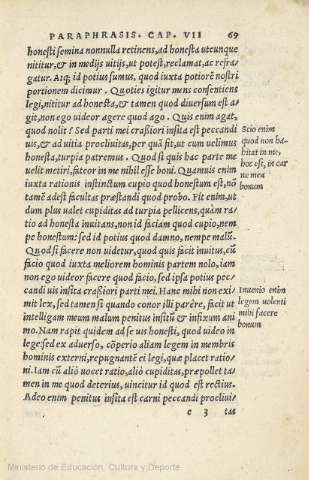 PARAPHRASIS. CAP. VII 69
honesti semina nonnulla retinens, ad honesta utcunque
nititur, & in medijs uitijs, ut potest, reclamat, ac refra-
gatur. Atq; id potius sumus, quod iuxta potiorē nostri
portionem dicimur. Quoties igitur mens consentiens
legi, nititur ad honesta, & tamen quod diuersum est a-
git, non ego uideor agere quod ago. Quis enim agat,
quod nolit? Sed parti mei craßiori insita est peccandi
uis, & ad uitia procliuitas, per quā fit, ut cum uelimus
honesta, turpia patremus. Quod si quis hac parte me
uelit metiri, fateor in me nihil esse boni. Quamuis enim
iuxta rationis instinctum cupio quod honestum est, nō
tamē adest facultas præstandi quod probo. Fit enim, ut
dum plus ualet cupiditas ad turpia pellicens, quàm ra-
tio ad honesta inuitans, non id faciam quod cupio, nem
pe honestum: sed id potius quod damno, nempe malū.
Quod si facere non uidetur, quod quis facit inuitus, cū
facio quod iuxta meliorem hominis partem nolo, iam
non ego uideor facere quod facio, sed ipsa potius pec-
candi uis insita craßiori parti mei. Hanc mihi non exi-
mit lex, sed tamen si quando conor illi parêre, facit ut
intelligam meum malum penitus insitū & infixum ani-
mo. Nam rapit quidem ad se uis honesti, quod uideo in
lege: sed ex aduerso, cōperio aliam legem in membris
hominis externi, repugnantē ei legi, quæ placet ratio-
ni. Iam cū aliò uocet ratio, aliò cupiditas, præpollet ta-
men in me quod deterius, uincitur id quod est rectius.
Adeo enim penitus insita est carni peccandi procliui-
c 3 tas
Scio enim
quod non ha-
bitat in me,
hoc est, in car
ne mea
bonum
Inuenio enim
legem uolenti
mihi facere
bonum
Ministerio de Educación, Cultura y Deporte